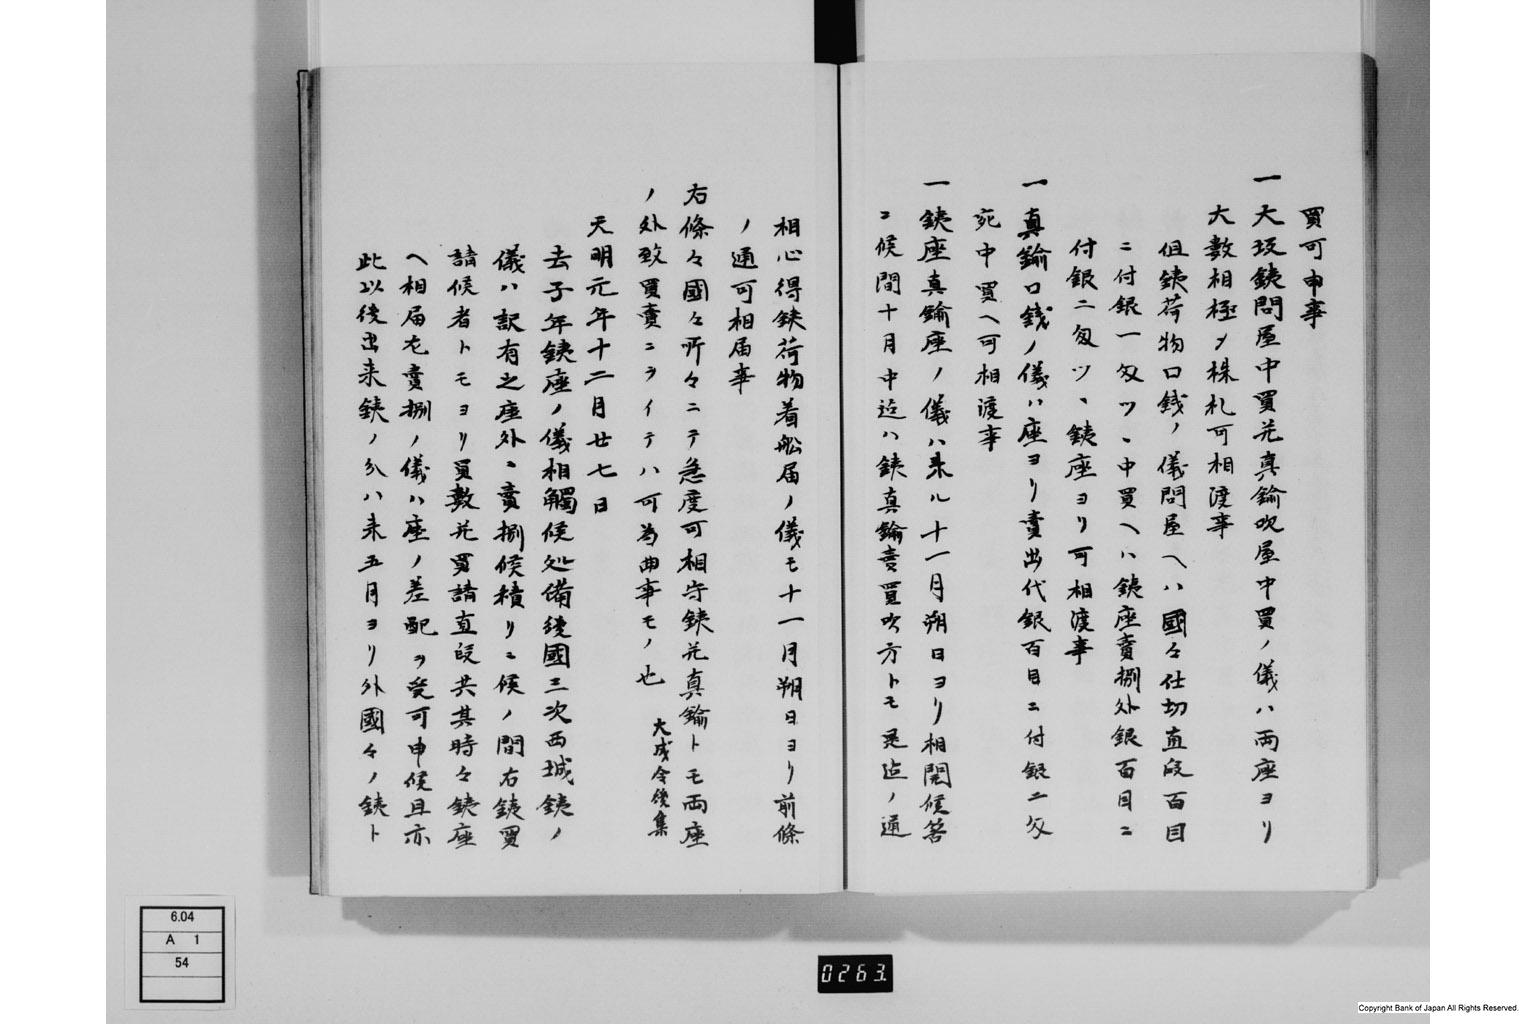 買可申事
一大坂銕問屋中買并真鍮吹屋中買ノ儀ハ両座ヨリ
大数相極メ株札可相渡事
但銕荷物口銭ノ儀問屋ヘハ國々仕切直段百目
ニ付銀一匁ツヽ中買ヘハ銕座賣捌外銀百目ニ
付銀二匁ツヽ銕座ヨリ可相渡事
一真鍮口銭ノ儀ハ座ヨリ賣出代銀百目ニ付銀二匁
宛中買ヘ可相渡事
一銕座真鍮座ノ儀ハ来ル十一月朔日ヨリ相開候筈
ニ候間十月中迄ハ銕真鍮賣買吹方トモ是迄ノ通
相心得銕荷物着舩届ノ儀モ十一月朔日ヨリ前條
ノ通可相届事
右條々國々所々ニテ急度可相守銕并真鍮トモ両座
ノ外致買賣ニヲイテハ可為曲事モノ也 大成令後集
天明元年十二月廿七日
去子年銕座ノ儀相觸候処備後國三次西城銕ノ
儀ハ訳有之座外ニ賣捌候積リニ候ノ間右銕買
請候者トモヨリ買數并買請直段共其時々銕座
ヘ相届尤賣捌ノ儀ハ座ノ差配ヲ受可申候且亦
此以後出来銕ノ分ハ来五月ヨリ外國々ノ銕ト
6.04
A 1
54
0263.
Copyright Bank of Japan All Rights Reserved.